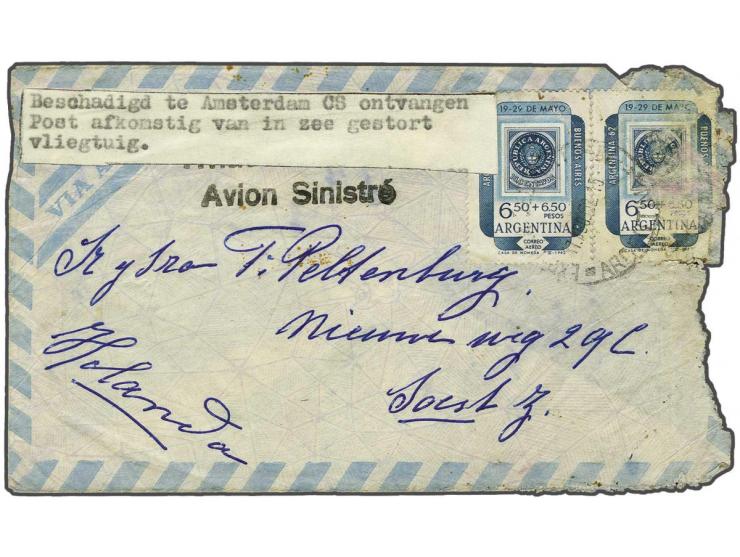 Beschadigd te Amsterdam CS ontvangen
Post afkomstig van in zee gestort
vliegtuig.
Avion Sinistré
VIA
19-29 DE MAYO
BUENOS AIRES
REPUBLICA ARGENTINA
6.50 + 6.50
PESOS
ARGENTINA
CORREO
AEREO
CASA DE MONEDA
19-29 DE MAYO
ARGENTINA 62
BUENOS
6.50 + 6.50
ARGENTINA
CORREO
AEREO
CASA DE MONEDA
T. Peltenburg,
Nieuwe weg 29C.
Soest Z.
Holanda